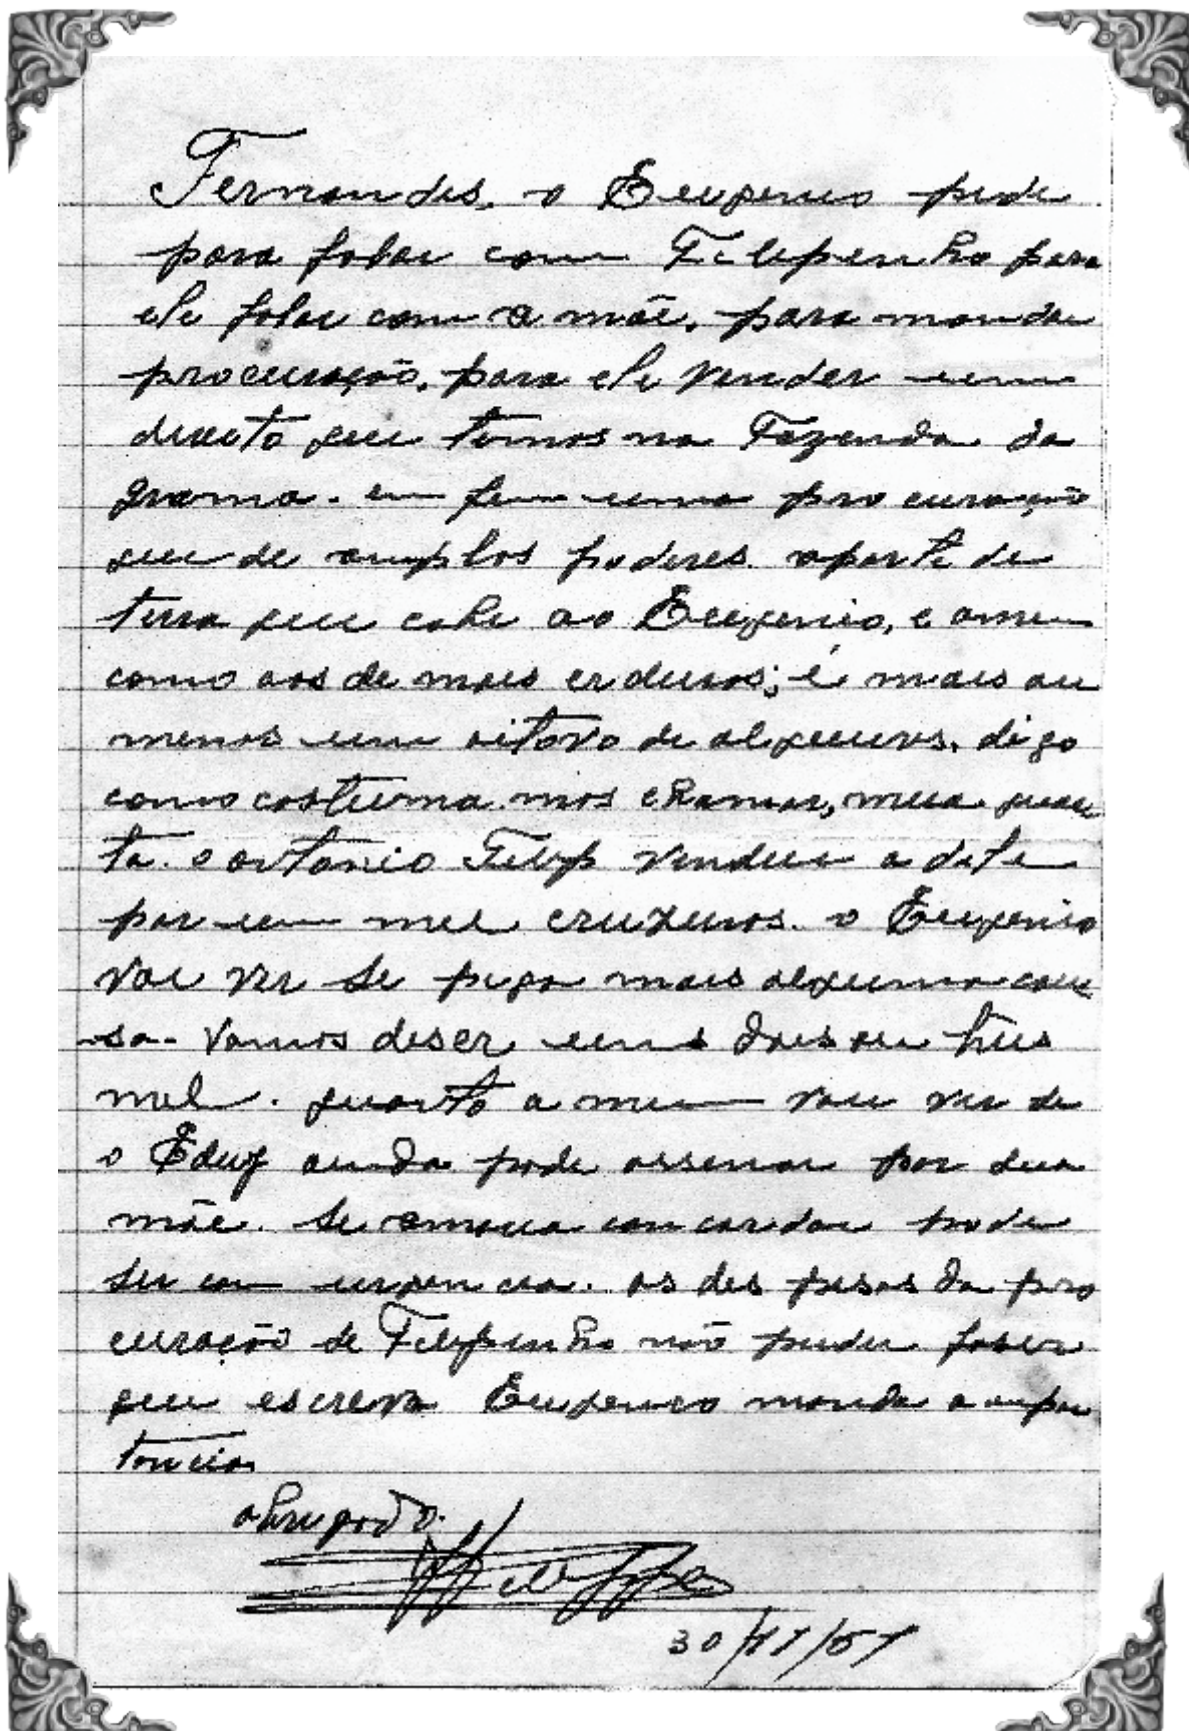 Fernandes, o Eugenio pede
para falar com Felipinho para
ele falar com a mãe, para mandar
procuração, para ele vender um
direito que temos na Fazenda da
grama. em fim uma procuração
que de amplos poderes. a parte de
terra que cabe ao Eugenio, e a mim
como aos de mais erdeiros; é mais ou
menos um oitavo de alqueires, digo
como costuma mos chamar, meia quar
ta. o antonio Felip vendeu a dele
por um mil cruzeiros. o Eugenio
vai ver se pega mais alguma cou
sa. Vamos diser uns dois ou tres
mil. quanto a mim vou ver se
o ainda pode assinar por sua
mãe. Se concordar pode
ser com urgencia. as des pesas da pro
curação se Felipinho não puder faser
que escreva Eugenio manda a impor
tancia
obrigado.
Felippes
30/11/57